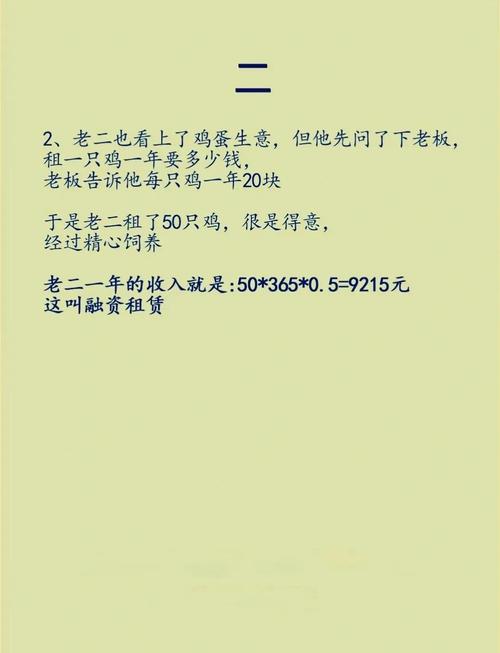 二
2、老二也看上了鸡蛋生意，但他先问了下老板，
租一只鸡一年要多少钱，
老板告诉他每只鸡一年20块
于是老二租了50只鸡，很是得意，
经过精心饲养
老二一年的收入就是:50*365*0.5=9215元
这叫融资租赁